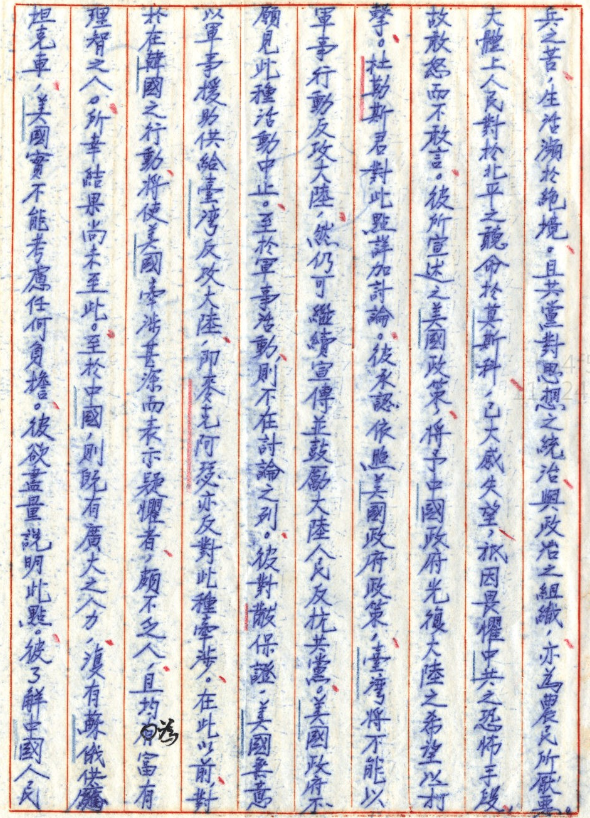 兵之苦，生活瀕於絕境。且共黨對思想之統治與政治之組織，亦為農民所厭惡。
大體上人民對於北平之聽命於莫斯科，已大感失望，祇因畏懼中共之恐怖手段，
故敢怒而不敢言。彼所宣述之美國政策，將予中國政府光復大陸之希望以打
擊。杜勒斯君對此點詳加討論。彼承認依照美國政府政策，臺灣將不能以
軍事行動反攻大陸，然仍可繼續宣傳並鼓勵大陸人民反抗共黨。美國政府不
願見此種活動中止。至於軍事活動則不在討論之列。彼對散保證，美國無意
以軍事援助供給臺灣反攻大陸，即麥克阿瑟亦反對此種牽涉。在此以前對
於在韓國之行動，將使美國牽涉甚深而表示疑懼者，頗不乏人，且均為富有
理智之人。所幸結果尚未至此。至於中國，則既有廣大之人力，復有蘇俄供給
坦克車，美國實不能考慮任何負擔。彼欲盡量說明此點。彼了解中國人民